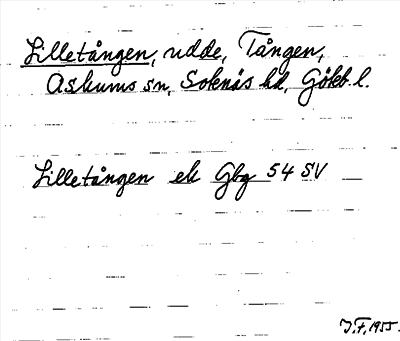 Lilletången, udde, Tången,
Askums sn, Sotenäs hd, Gökb. l.
Lilletången ek Gbg 54 SV
J.F. 1955.